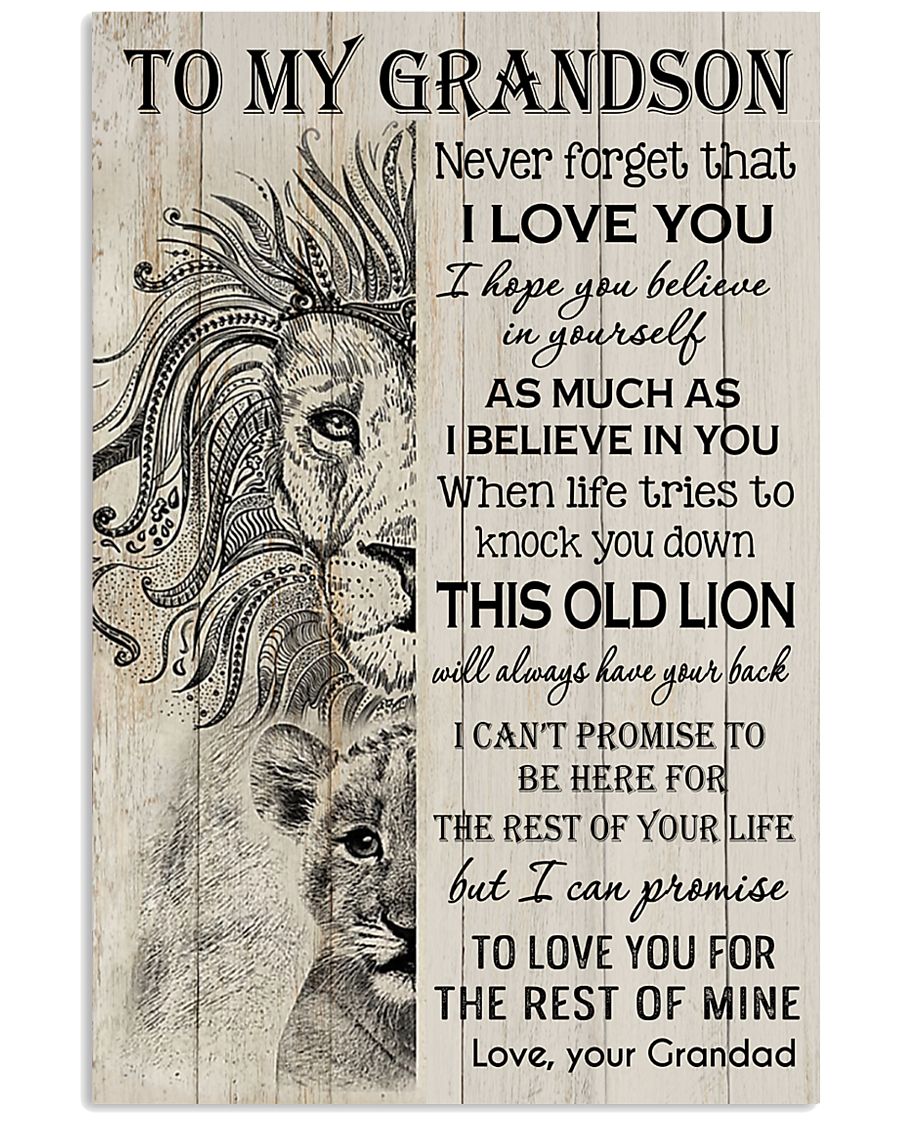 TO MY GRANDSON
Never forget that
I LOVE YOU
I hope you believe
in yourself
AS MUCH AS
I BELIEVE IN YOU
When life tries to
knock you down
THIS OLD LION
will always have your back
I CAN'T PROMISE TO
BE HERE FOR
THE REST OF YOUR LIFE
but I can promise
TO LOVE YOU FOR
THE REST OF MINE
Love, your Grandad